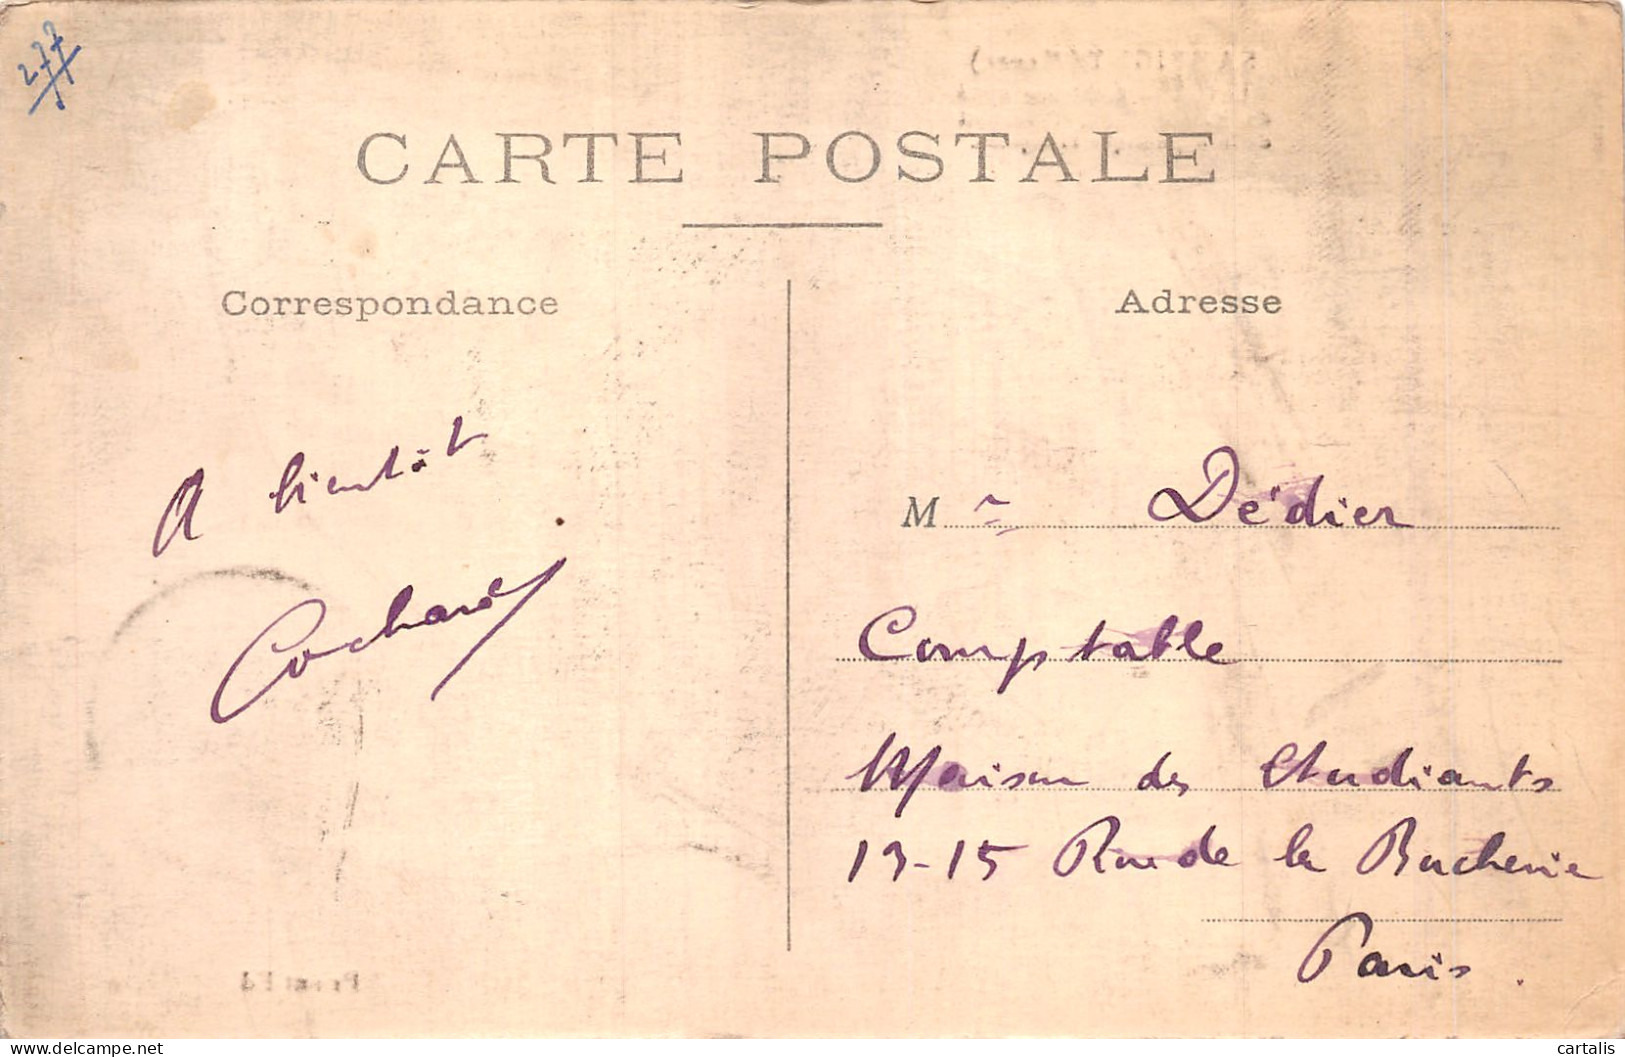 277
CARTE POSTALE
Correspondance
Adresse
A bientôt
Cochard
Mr Dédier
Comptable
Maison des Etudiants
13-15 Rue de la Bucherie
Paris.
www.delcampe.net
cartalis